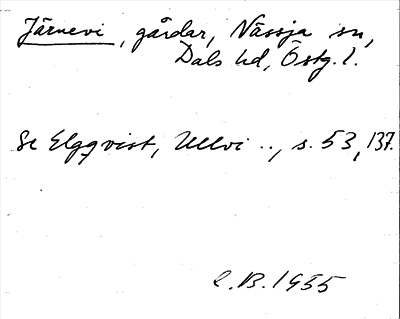 Järnevi, gårdar, Nässja sn,
Dals hd, Östg. l.
Se Elgqvist, Ullvi .., s. 53, 137.
E.B. 1955